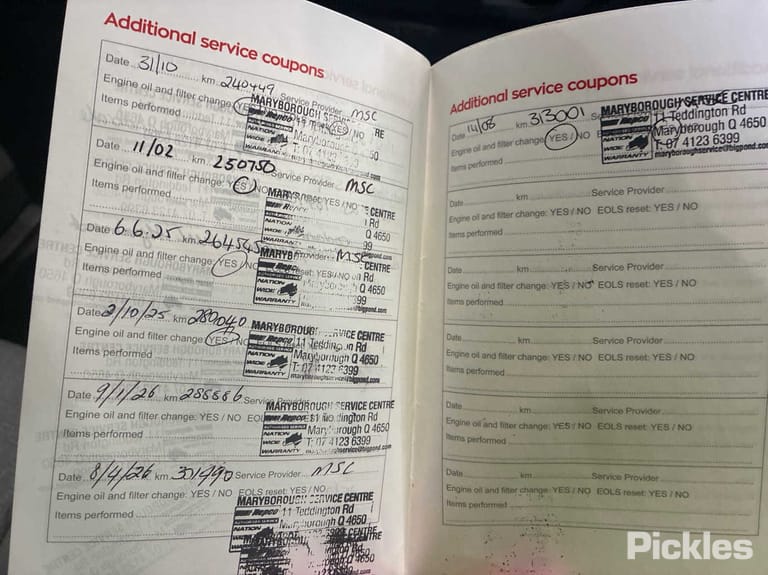 Additional service coupons
Date 31/10 km 240449 Service Provider MSC
Engine oil and filter change: YES
Items performed
MARYBOROUGH SERVICE CENTRE
Date 11/02 km 250750 Service Provider MSC
Engine oil and filter change: YES / NO YES / NO
Items performed
CENTRE
Rd
Q 4650
Date 6.6.25 km 264545 Provider MSC
Engine oil and filter change: YES / NO reset: YES / NO
Items performed
CENTRE
Rd
Q 4650
WARRANTY
Date 2/10/25 km 280040
Engine oil and filter change: YES / NO
Items performed
MARYBOROUGH SERVICE CENTRE
Repco 11 Teddington Rd
NATION Maryborough Q 4650
WIDE T: 07 4123 6399
WARRANTY maryboroughservice@bigpond.com
Date 9/1/26 km 288886 Service
Engine oil and filter change: YES / NO
Items performed
MARYBOROUGH SERVICE CENTRE
Repco 11 Teddington Rd
NATION Maryborough Q 4650
WIDE T: 07 4123 6399
WARRANTY
Date 8/4/26 km 301490 Service Provider MSC
Engine oil and filter change: YES / NO EOLS reset: YES / NO
Items performed
MARYBOROUGH SERVICE CENTRE
Repco 11 Teddington Rd
Maryborough Q 4650
Additional service coupons
Date 14/08 km 313001
Engine oil and filter change: YES / NO
Items performed
MARYBOROUGH SERVICE CENTRE
Repco 11 Teddington Rd
Maryborough Q 4650
WIDE T: 07 4123 6399
WARRANTY maryboroughservice@bigpond.com
Date km Service Provider
Engine oil and filter change: YES / NO EOLS reset: YES / NO
Items performed
Date km Service Provider
Engine oil and filter change: YES / NO EOLS reset: YES / NO
Items performed
Date km Service Provider
Engine oil and filter change: YES / NO EOLS reset: YES / NO
Items performed
Date km Service Provider
Engine oil and filter change: YES / NO EOLS reset: YES / NO
Items performed
Date km Service Provider
Engine oil and filter change: YES / NO EOLS reset: YES / NO
Items performed
Pickles